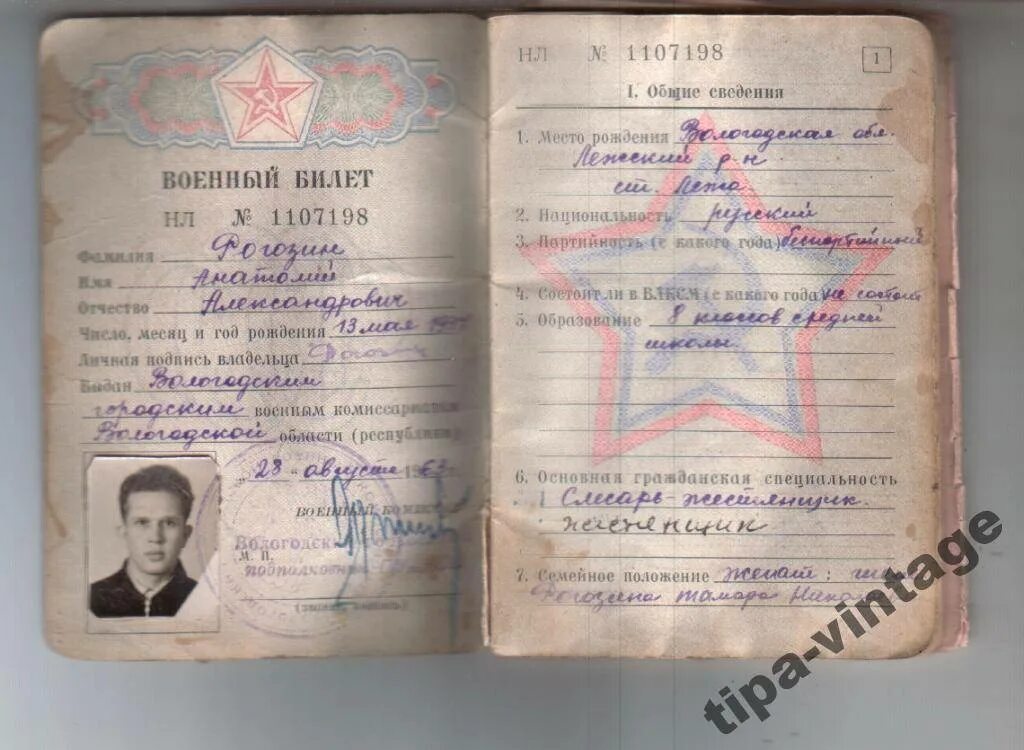 ВОЕННЫЙ БИЛЕТ
НЛ № 1107198
Фамилия Рогозин
Имя Анатолий
Отчество Александрович
Число, месяц и год рождения 13 мая
Личная подпись владельца
Выдан Вологодским
городским военным комиссариатом
Вологодской области (республики)
"28" августа 1963 г.
ВОЕННЫЙ
Вологодск
М. П. подполковник
НЛ № 1107198 1
I. Общие сведения
1. Место рождения Вологодская обл.
Лежский р-н
ст. Лежа
2. Национальность русский
3. Партийность (с какого года) беспартийный
4. Состоит ли в ВЛКСМ (с какого года) не состоит
5. Образование 8 классов средней
школы.
6. Основная гражданская специальность
Слесарь-жестянщик.
жестянщик
7. Семейное положение женат:
Рогозина Тамара
tipa-vintage